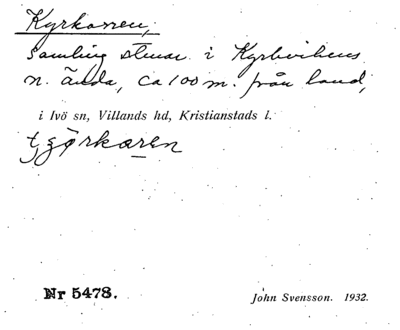 Kyrkaren,
Samling stenar i Kyrkvikens
n. ända, ca 100 m. från land,
i Ivö sn, Villands hd, Kristianstads l.
Nr 5478.
John Svensson. 1932.